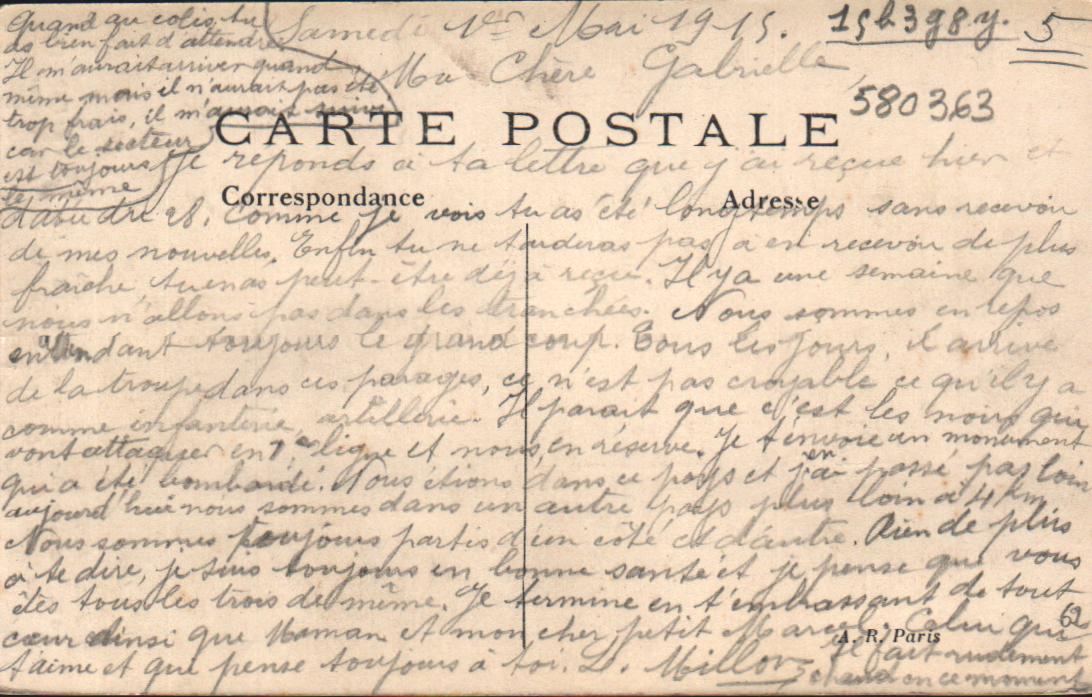 Samedi 1er Mai 1915.
15h3g8.y.
5
Ma Chère Gabrielle
580363
CARTE POSTALE
Correspondance
Adresse
Je reponds à ta lettre que j'ai reçue hier et
datée du 28. Comme je vois tu as été longtemps sans recevoir
de mes nouvelles. Enfin tu ne tarderas pas à en recevoir de plus
fraîche tu en as peut-être déjà reçue. Il y a une semaine que
nous n'allons pas dans les tranchées. Nous sommes en repos
attendant toujours le grand coup. Tous les jours, il arrive
de la troupe dans ces parages, ce n'est pas croyable ce qu'il y a
comme infanterie, artillerie. Il parait que c'est les noirs qui
vont attaquer en 1e ligne et nous en réserve. Je t'envoie un monument
qui a été bombardé. Nous étions dans ce pays et j'en ai passé pas loin
aujourd'hui nous sommes dans un autre pays plus loin à 4 km
Nous sommes toujours partis d'un côté et d'autre. Rien de plus
à te dire, je suis toujours en bonne santé et je pense que vous
êtes tous les trois de même. Je termine en t'embrassant de tout
cœur ainsi que Maman et mon cher petit Marcel. Celui qui
t'aime et que pense toujours à toi. L. Millot
Il fait rudement
chaud en ce moment
62
A. R. Paris
Quand au colis, tu
as bien fait d'attendre
Il m'aurait arriver quand
même mais il n'aurait pas été
trop frais, il m'aurait suivi
car le secteur
est toujours
le même